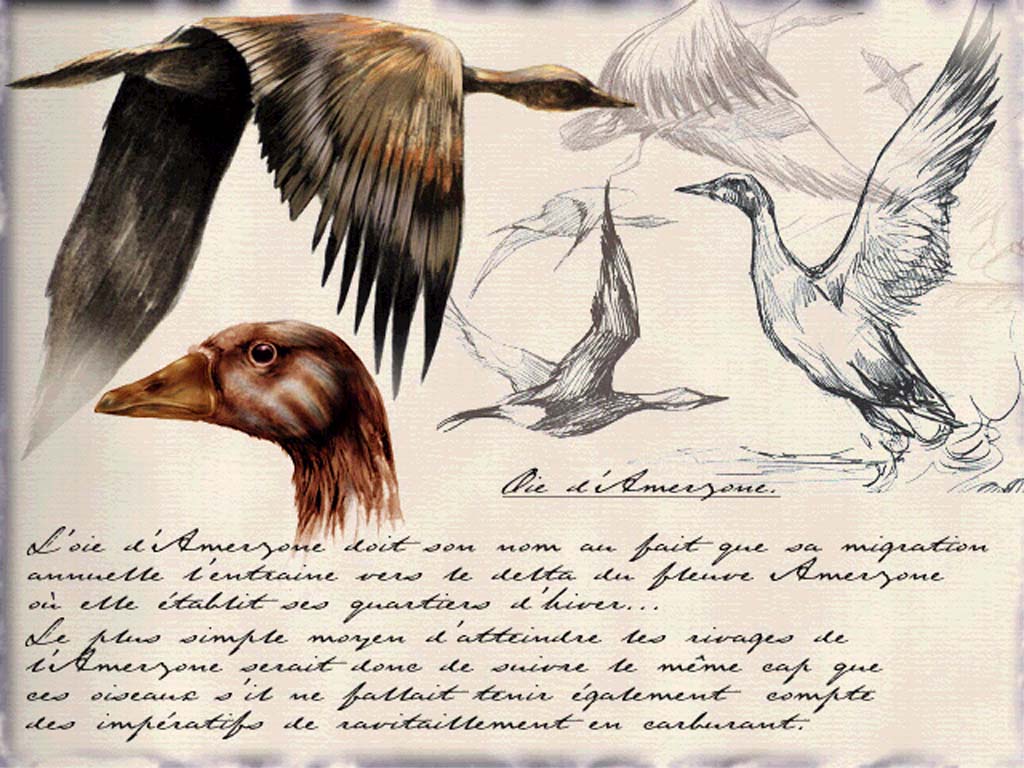 Oie d'Amerzone.
L'oie d'Amerzone doit son nom au fait que sa migration
annuelle l'entraine vers le delta du fleuve Amerzone
où elle établit ses quartiers d'hiver...
Le plus simple moyen d'atteindre les rivages de
l'Amerzone serait donc de suivre le même cap que
ces oiseaux s'il ne fallait tenir également compte
des impératifs de ravitaillement en carburant.